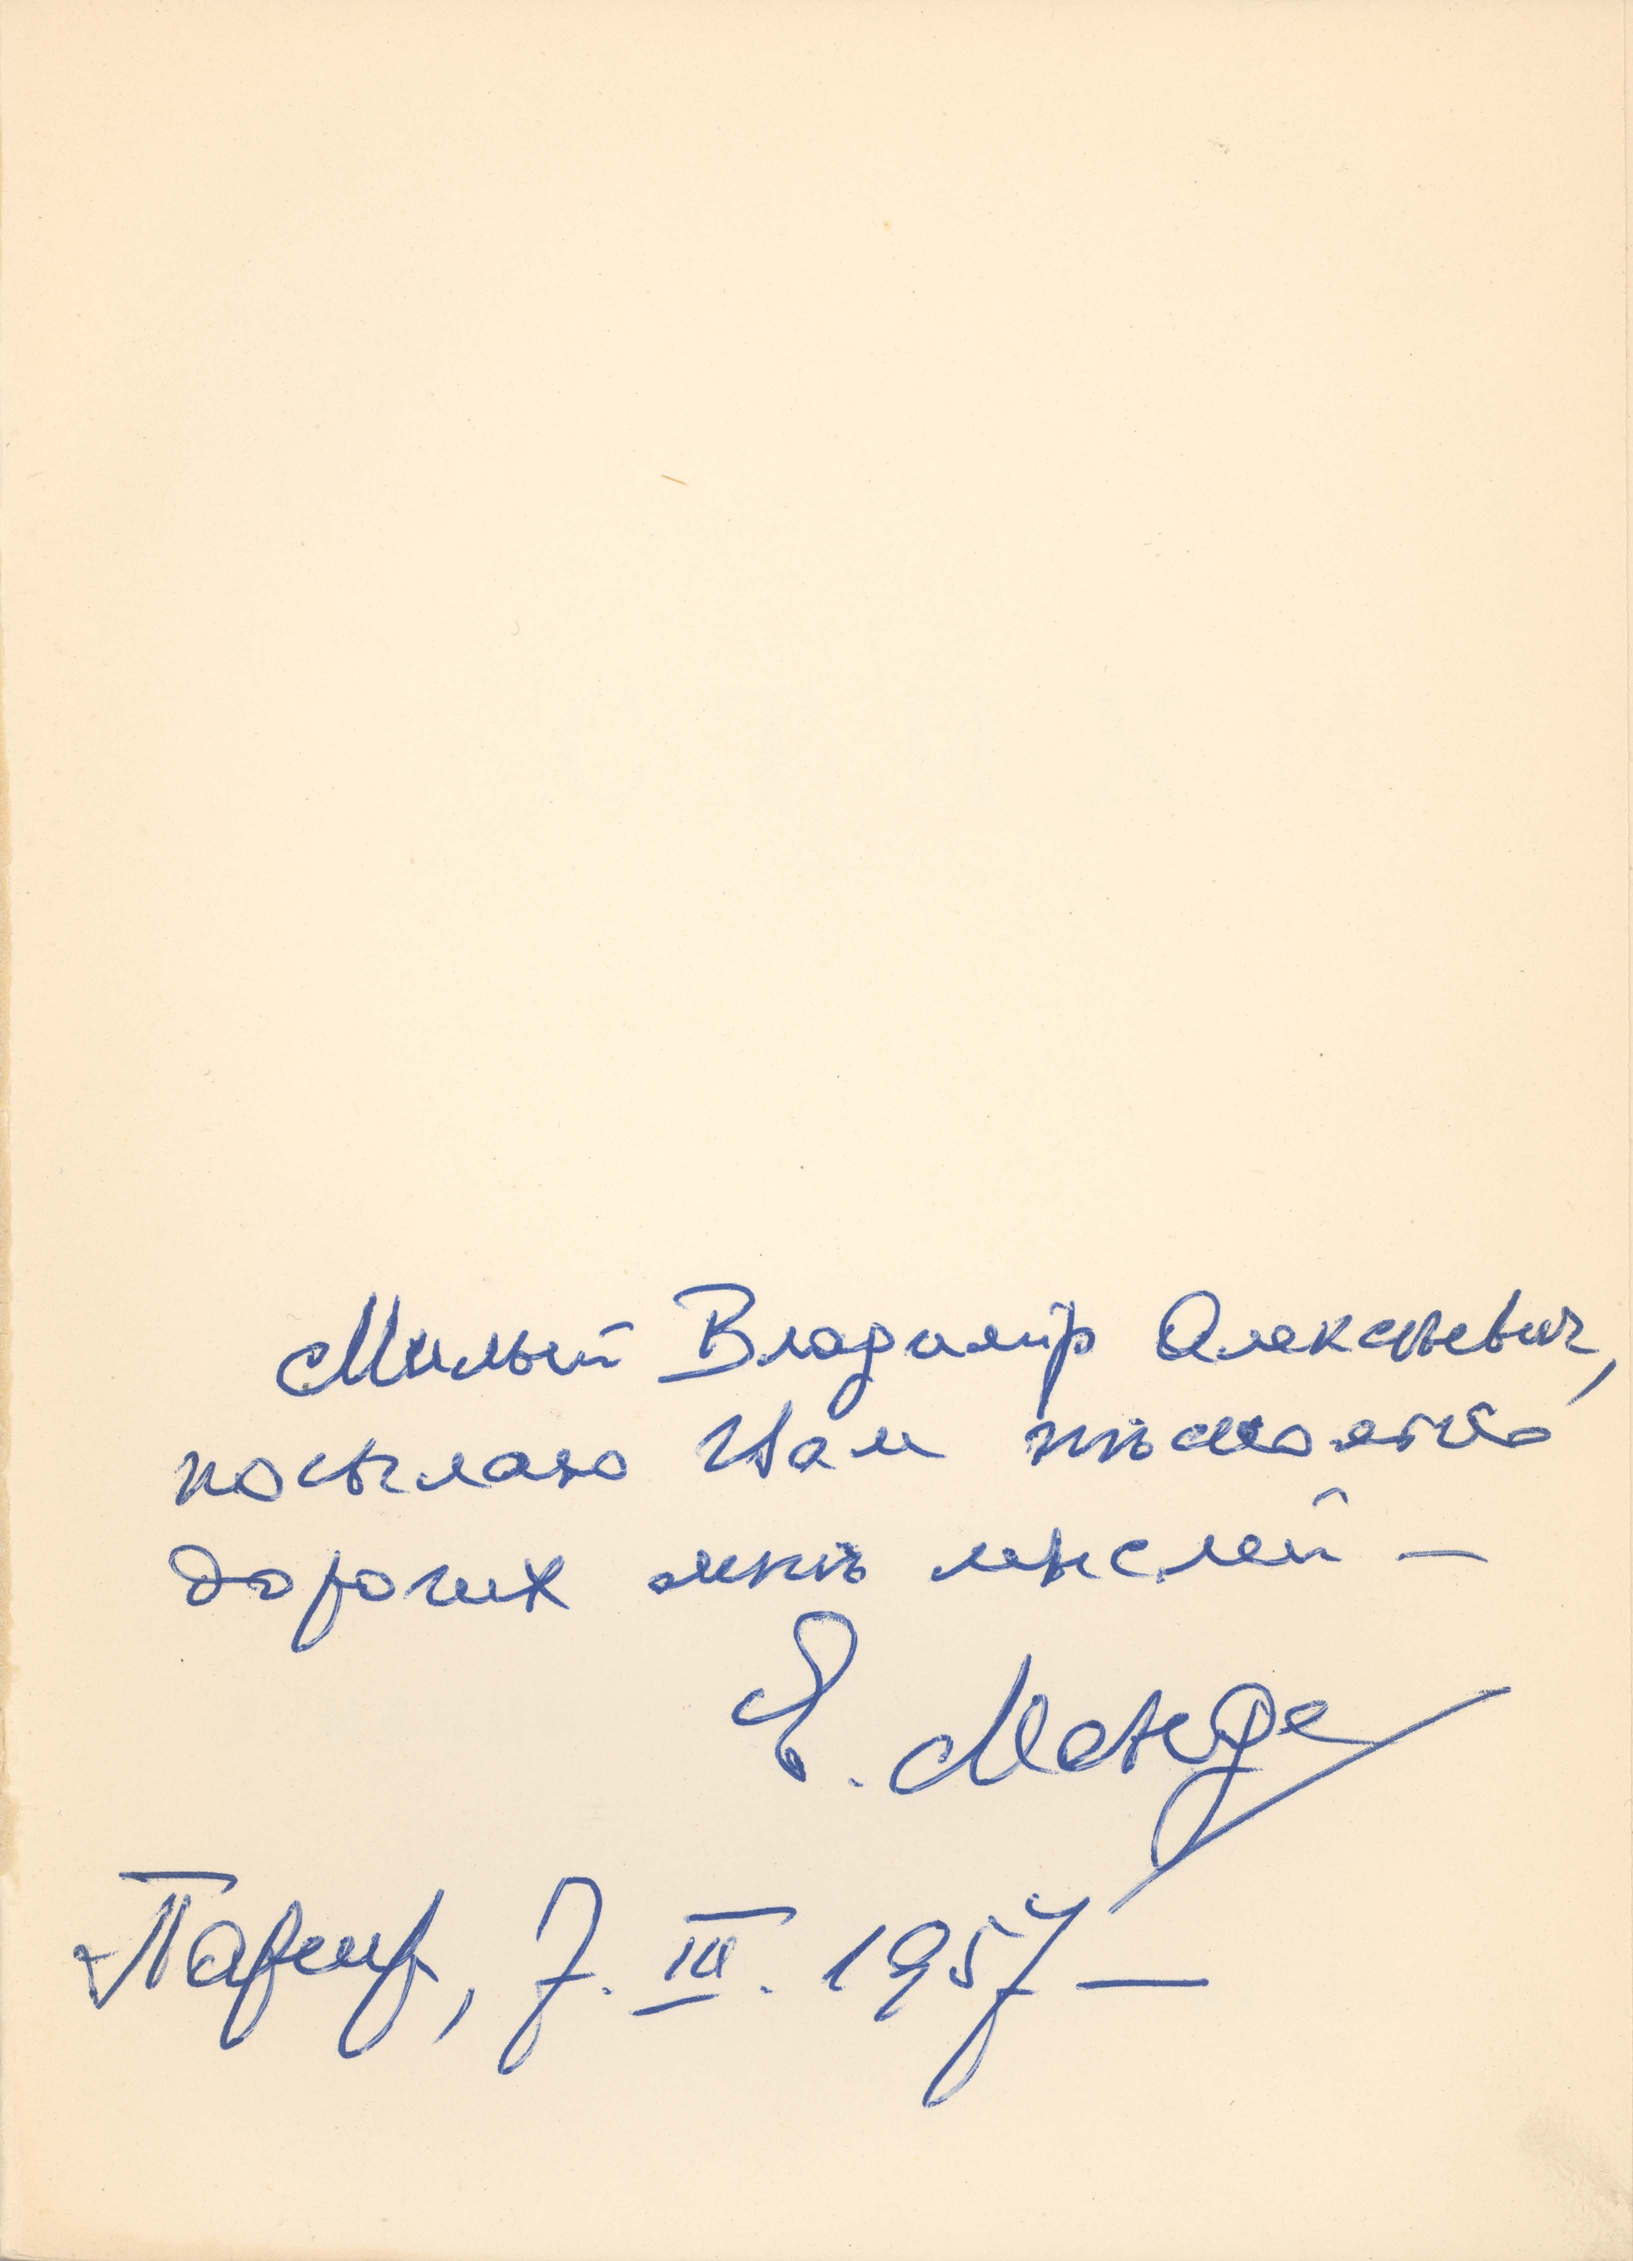 Милый Владимiр Алексѣевич,
посылаю Вам нѣсколько
дорогих мнѣ мыслей —
Е. Менде
Париж, 7. III. 1957 —